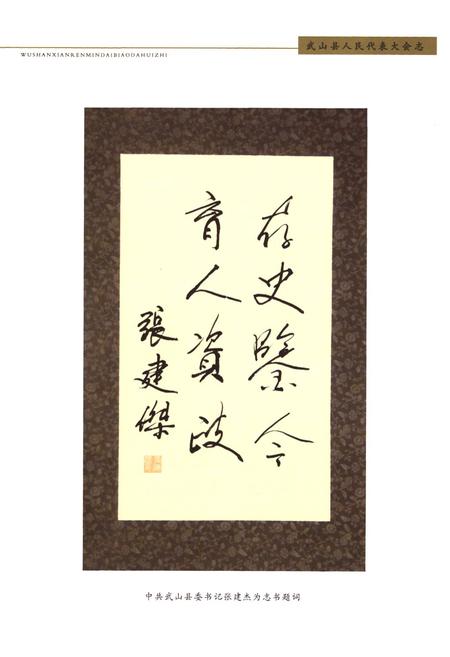 WUSHANXIANRENMINDAIBIAODAHUIZHI
武山县人民代表大会志
存史鑒今
育人資政
張建傑
中共武山县委书记张建杰为志书题词